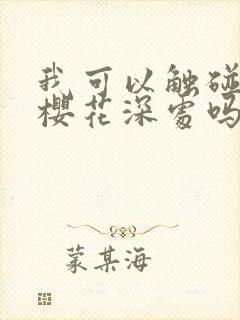 我可以触碰
樱花深处吗
蒙某海